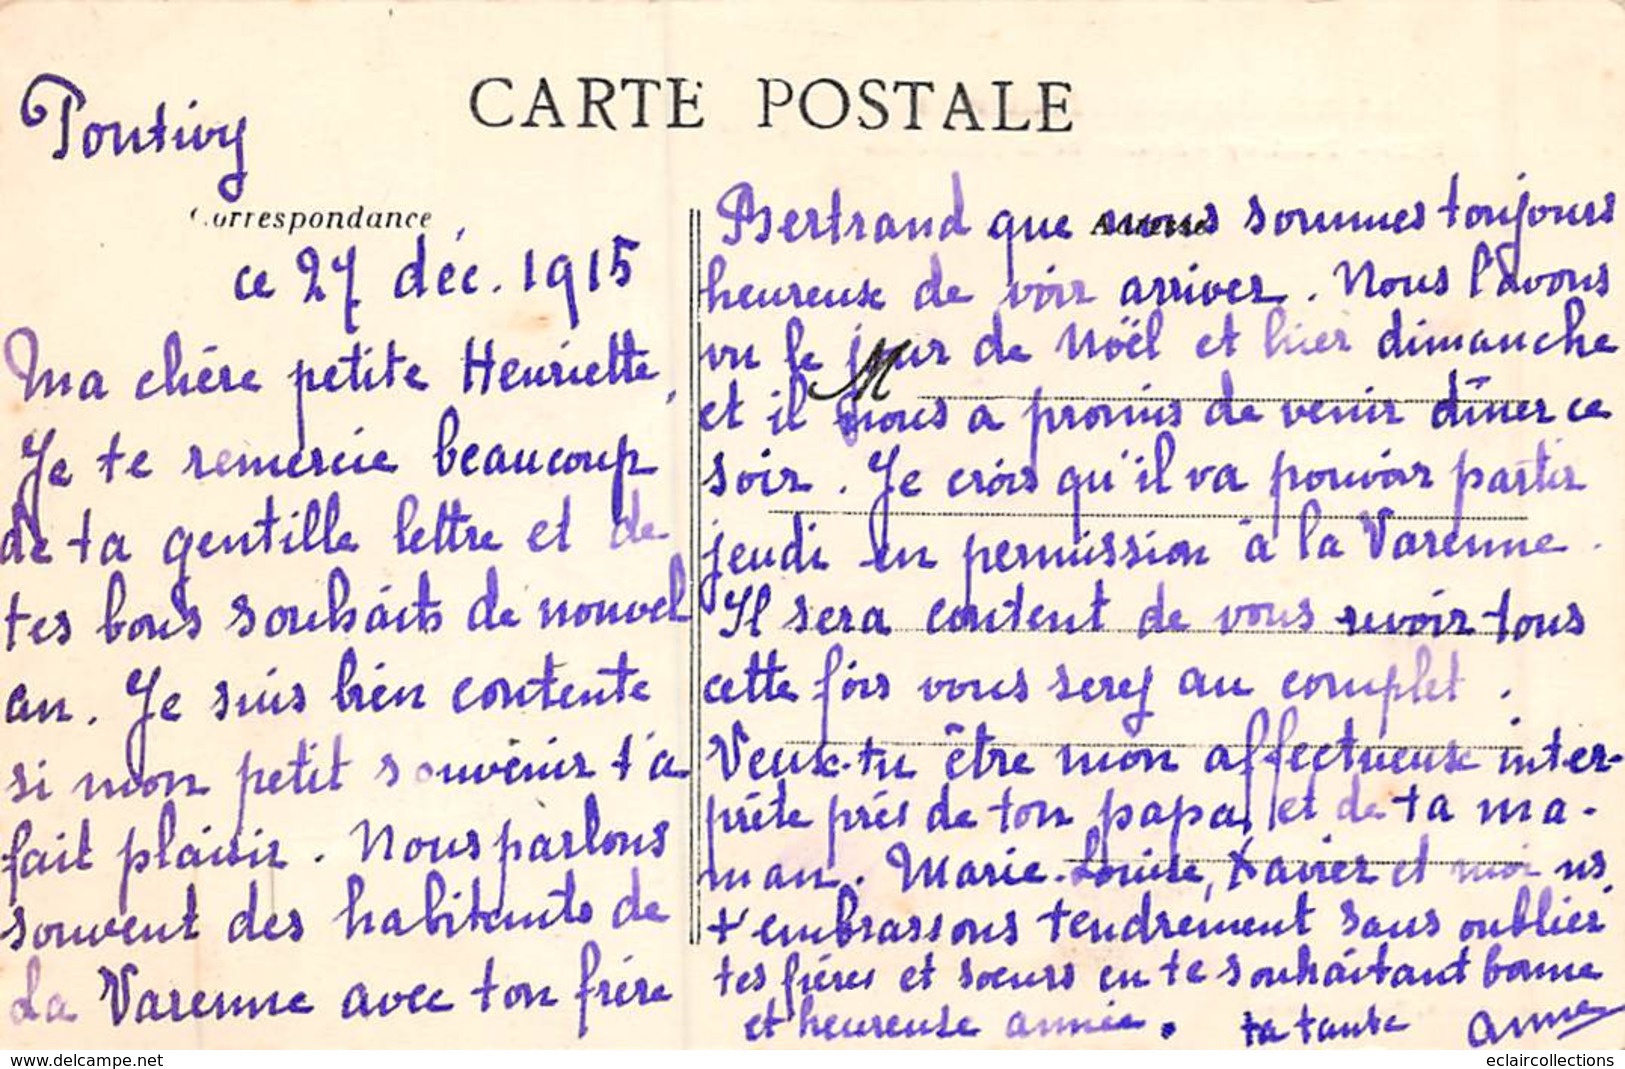 CARTE POSTALE
Pontivy
Correspondance
ce 27 déc. 1915
Ma chère petite Henriette,
Je te remercie beaucoup
de ta gentille lettre et de
tes bons souhaits de nouvel
an. Je suis bien contente
si mon petit souvenir t'a
fait plaisir. Nous parlons
souvent des habitants de
La Varenne avec ton frère
Bertrand que nous sommes toujours
heureux de voir arriver. Nous l'avons
vu le jour de Noël et hier dimanche
M
et il nous a promis de venir dîner ce
soir. Je crois qu'il va pouvoir partir
jeudi en permission à la Varenne.
Il sera content de vous revoir tous
cette fois vous serez au complet.
Veux-tu être mon affectueux inter-
prète près de ton papa, et de ta ma-
man. Marie-Louise, Xavier et moi ns
t'embrassons tendrement sans oublier
tes frères et sœurs en te souhaitant bonne
et heureuse année. ta tante Anne
www.delcampe.net
eclaircollections